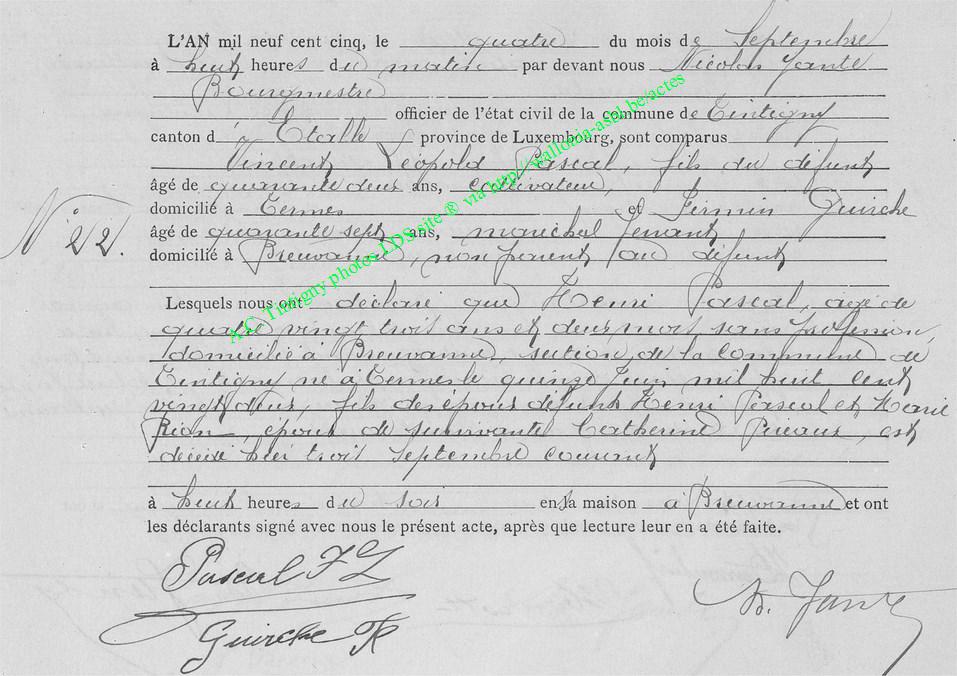 L'AN mil neuf cent cinq, le quatre du mois de Septembre
à huit heures du matin par devant nous Nicolas Jante
Bourgmestre
officier de l'état civil de la commune de Tintigny
canton d'Etalle province de Luxembourg, sont comparus
Vincent Léopold Pascal, fils du défunt
âgé de quarante deux ans, cultivateur,
domicilié à Termes et Firmin Guirche
N° 22.
âgé de quarante sept ans, maréchal ferrant
domicilié à Breuvanne, non parent au défunt
Lesquels nous ont déclaré que Henri Pascal, âgé de
quatre vingt trois ans et deux mois, sans profession,
domicilié à Breuvanne, section de la commune de
Tintigny né à Termes le quinze Juin mil huit cent
vingt deux, fils des époux défunts Henri Pascal et Marie
époux de survivante Catherine est
décédé hier trois septembre courant
à huit heures du soir en sa maison à Breuvanne et ont
les déclarants signé avec nous le présent acte, après que lecture leur en a été faite.
Pascal
Guirche
N. Jante
A.C. Tintigny photos LDS site ® via http://wallonia-asgl.be/actes